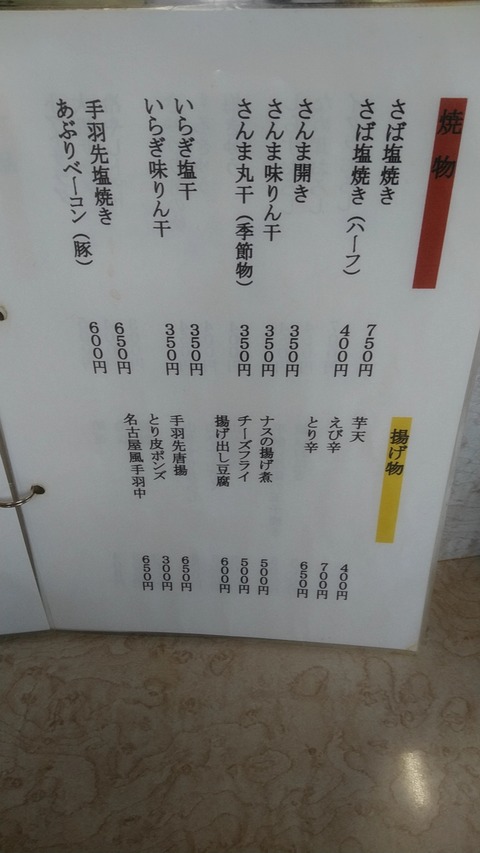 焼物
さば塩焼き 750円
さば塩焼き（ハーフ） 400円
さんま開き 350円
さんま味りん干 350円
さんま丸干（季節物） 350円
いらぎ塩干 350円
いらぎ味りん干 350円
手羽先塩焼き 650円
あぶりベーコン（豚） 600円
揚げ物
芋天 400円
えび辛 700円
とり辛 650円
ナスの揚げ煮 500円
チーズフライ 500円
揚げ出し豆腐 600円
手羽先唐揚 650円
とり皮ポンズ 300円
名古屋風手羽中 650円